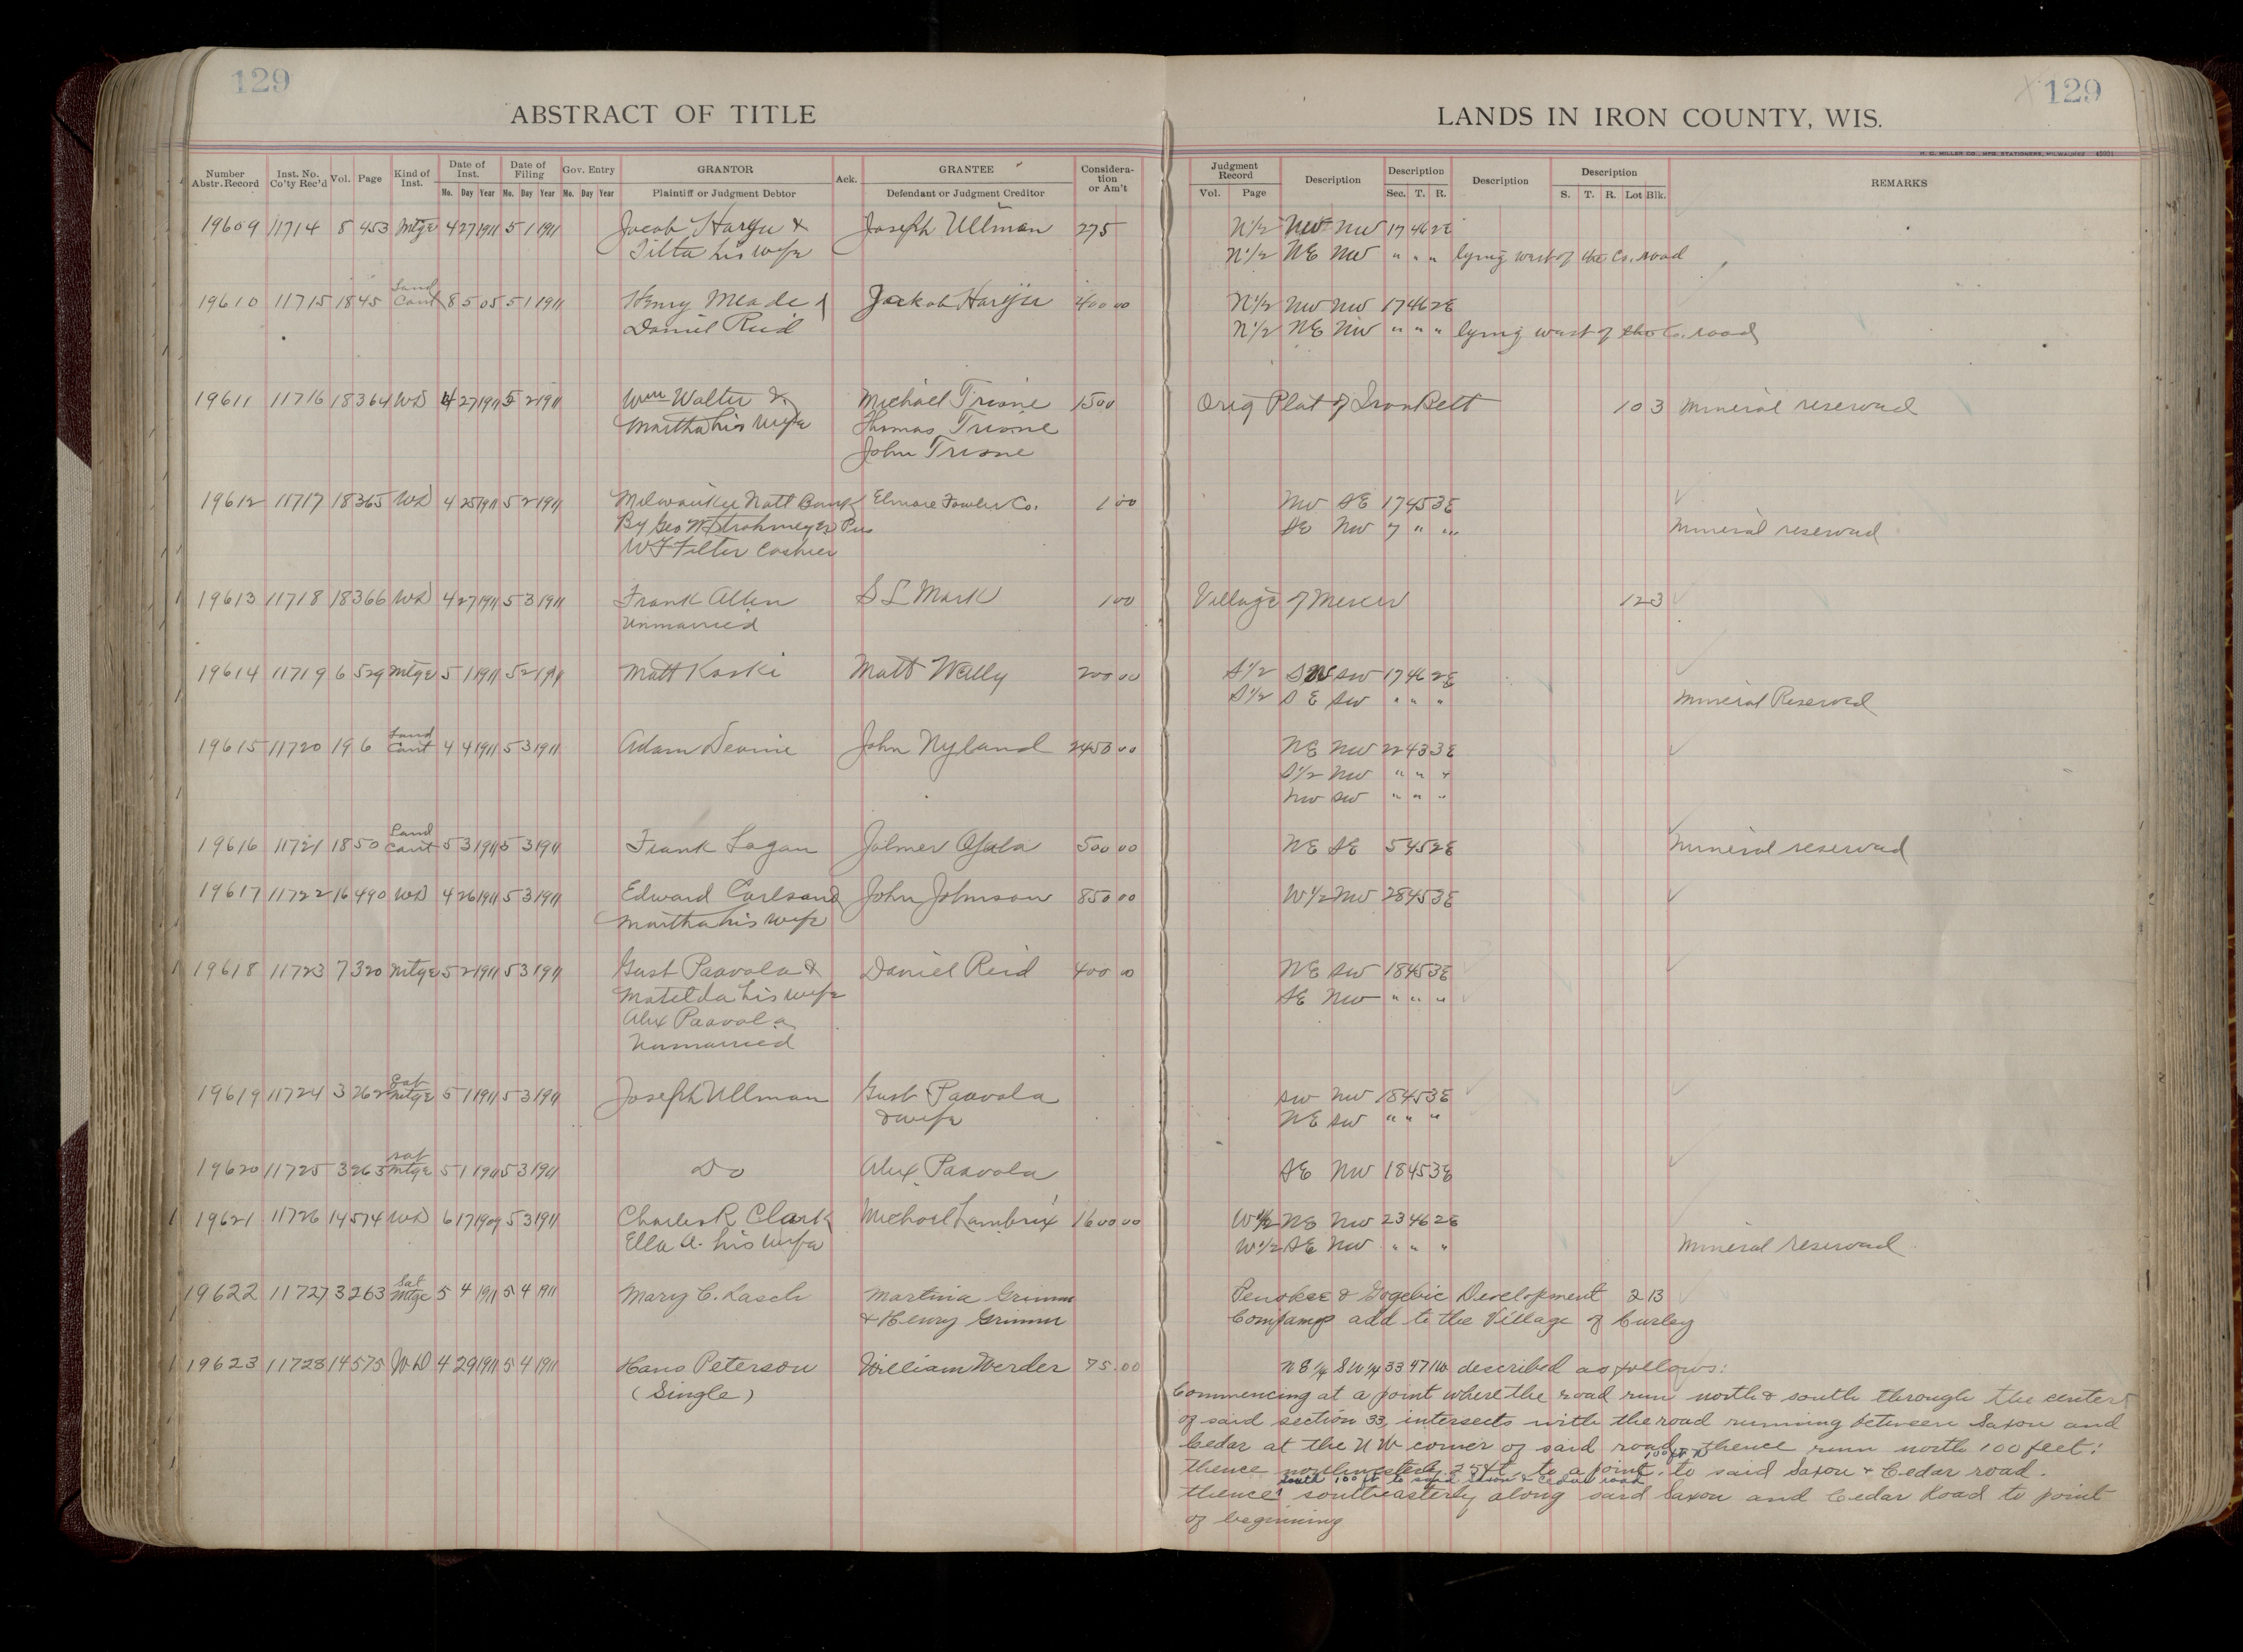 129
ABSTRACT OF TITLE
LANDS IN IRON COUNTY, WIS.
129
H. C. MILLER CO., MFG. STATIONERS, MILWAUKEE
Number Abstr. Record | Inst. No. Co'ty Rec'd | Vol. | Page | Kind of Inst. | Date of Inst. Mo. Day Year | Date of Filing Mo. Day Year | Gov. Entry Mo. Day Year | GRANTOR Plaintiff or Judgment Debtor | Ack. | GRANTEE Defendant or Judgment Creditor | Considera-tion or Am't | Judgment Record Vol. Page | Description | Description Sec. T. R. | Description | Description S. T. R. Lot Blk. | REMARKS
19609 11714 8 453 Mtge 4 27 1911 5 1 1911 Jacob Harju & Joseph Ullman 275 N 1/2 NW NW 17 46 2E
his wife N 1/2 NE NW " " " lying west of the Co. road
19610 11715 18 45 Land Cont 8 5 05 5 1 1911 Henry Meade & Jackob Harju 400 00 N 1/2 NW NW 17 46 2E
Daniel Reid N 1/2 NE NW " " " lying west of the Co. road
19611 11716 18 364 WD 4 27 1911 5 2 1911 Wm Walter & Michael Trione 1500 Orig Plat of Iron Belt 10 3 Mineral reserved
Martha his wife Thomas Trione
John Trione
19612 11717 18 365 WD 4 25 1911 5 2 1911 Milwaukee Natl Bank Elmore Fowler Co. 1 00 NW SE 17 45 3E
By Geo W Strohmeyer Pres SE NW 7 " " Mineral reserved
W F Filter Cashier
19613 11718 18 366 WD 4 27 1911 5 3 1911 Frank Allen S L Mark 1 00 Village of Mercer 12 3
Unmarried
19614 11719 6 529 Mtge 5 1 1911 5 2 1911 Matt Koski Matt Wally 200 00 S 1/2 SW SW 17 46 2E
S 1/2 SE SW " " " Mineral Reserved
19615 11720 19 6 Land Cont 4 4 1911 5 3 1911 Adam Devine John Nyland 2450 00 NE NW 22 43 3E
S 1/2 NW " " "
NW SW " " "
19616 11721 18 50 Land Cont 5 3 1911 5 3 1911 Frank Logan Jalmer Ojala 500 00 NE SE 5 45 2E Mineral reserved
19617 11722 16 490 WD 4 26 1911 5 3 1911 Edward Carlson & John Johnson 850 00 W 1/2 NW 28 45 3E
Martha his wife
19618 11723 7 320 Mtge 5 2 1911 5 3 1911 Gust Paavola & Daniel Reid 400 00 NE SW 18 45 3E
Matilda his wife SE NW " " "
Alex Paavola
Unmarried
19619 11724 3 262 Sat Mtge 5 1 1911 5 3 1911 Joseph Ullman Gust Paavola SW NW 18 45 3E
& wife NE SW " " "
19620 11725 3 263 Sat Mtge 5 1 1911 5 3 1911 Do Alex Paavola SE NW 18 45 3E
19621 11726 14 574 WD 6 17 1909 5 3 1911 Charles R Clark Michael Lambrix 1600 00 W 1/2 NE NW 23 46 2E
Ella A. his wife W 1/2 SE NW " " " Mineral reserved
19622 11727 3 263 Sat Mtge 5 4 1911 5 4 1911 Mary C. Lasch Martina Grimm Penokee & Gogebic Development 2 13
& Henry Grimm Companys add to the Village of Hurley
19623 11728 14 575 WD 4 29 1911 5 4 1911 Hans Peterson William Werder 75.00 NE 1/4 SW 1/4 33 47 1W described as follows:
(Single) Commencing at a point where the road run north & south through the center
of said section 33, intersects with the road running between Saxon and
Cedar at the N W corner of said road, thence run north 100 feet:
thence northwesterly 254 ft. to a point 100 ft N to said Saxon & Cedar road.
thence south 100 ft to said Saxon & Cedar road southeasterly along said Saxon and Cedar Road to point
of beginning